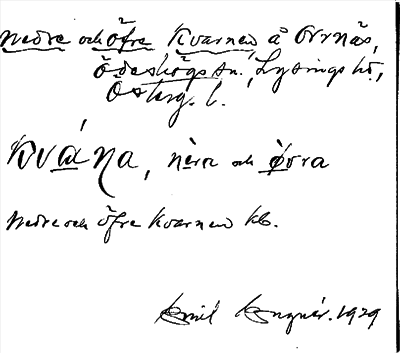 Nedre och Öfre Kvarnen å Orrnäs,
Ödeshögs sn., Lysings hd.,
Österg. l.
Kvána, nèrra och ø̀vra
Nedre och Öfre Kvarnen kb.
Emil 1929